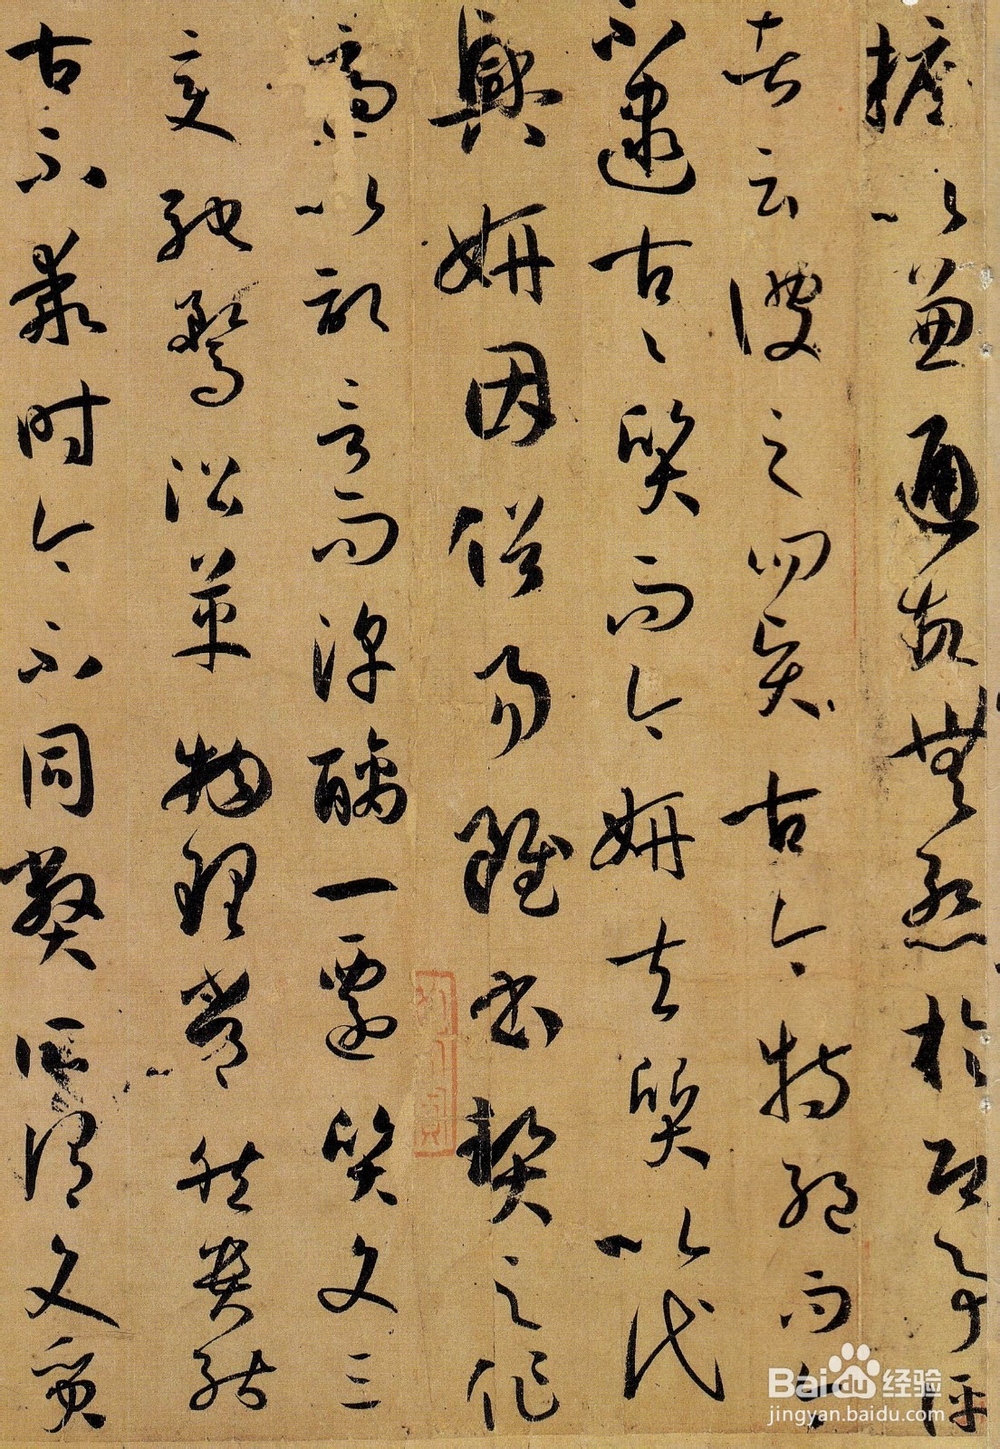 擅以兼通故無慙於即事評
者云彼之四賢古今特絕而今
不逮古〻質而今妍夫質以代
興妍因俗易雖書契之作
適以記言而淳醨一遷質文三
變馳騖沿革物理常然貴能
古不乖時今不同弊所謂文質
Baidu经验
jingyan.baidu.com